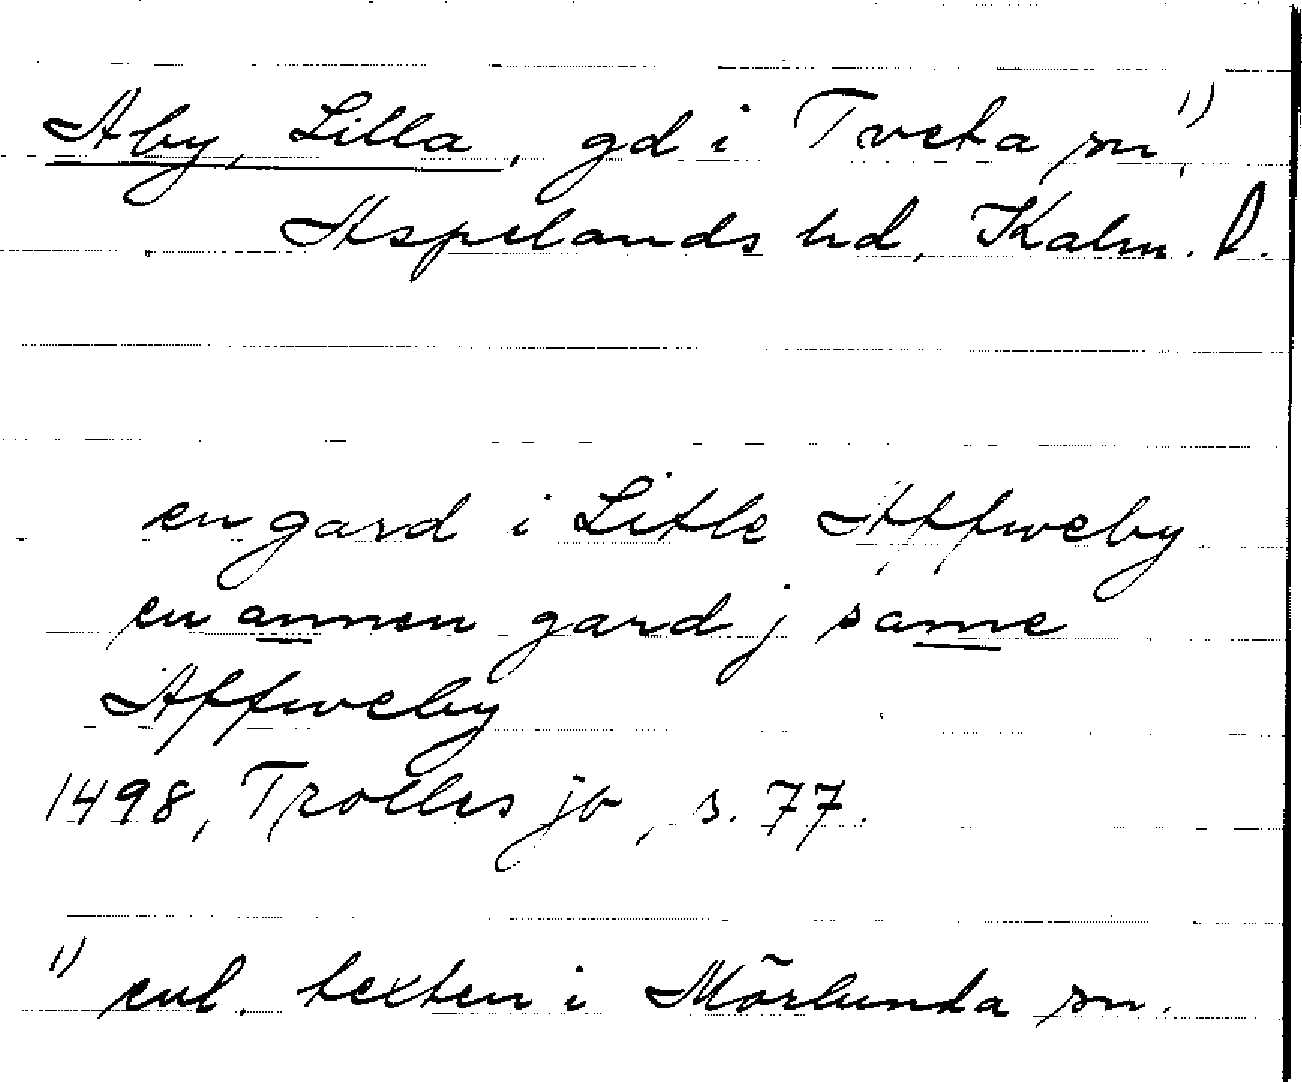 Åby, Lilla, gd i Tveta sn¹⁾,
Aspelands hd, Kalm. l.
en gard i Litle Affweby
en annen gard j same
Affweby
1498, Trolles jb, s. 77.
¹⁾ enl. texten i Mörlunda sn.